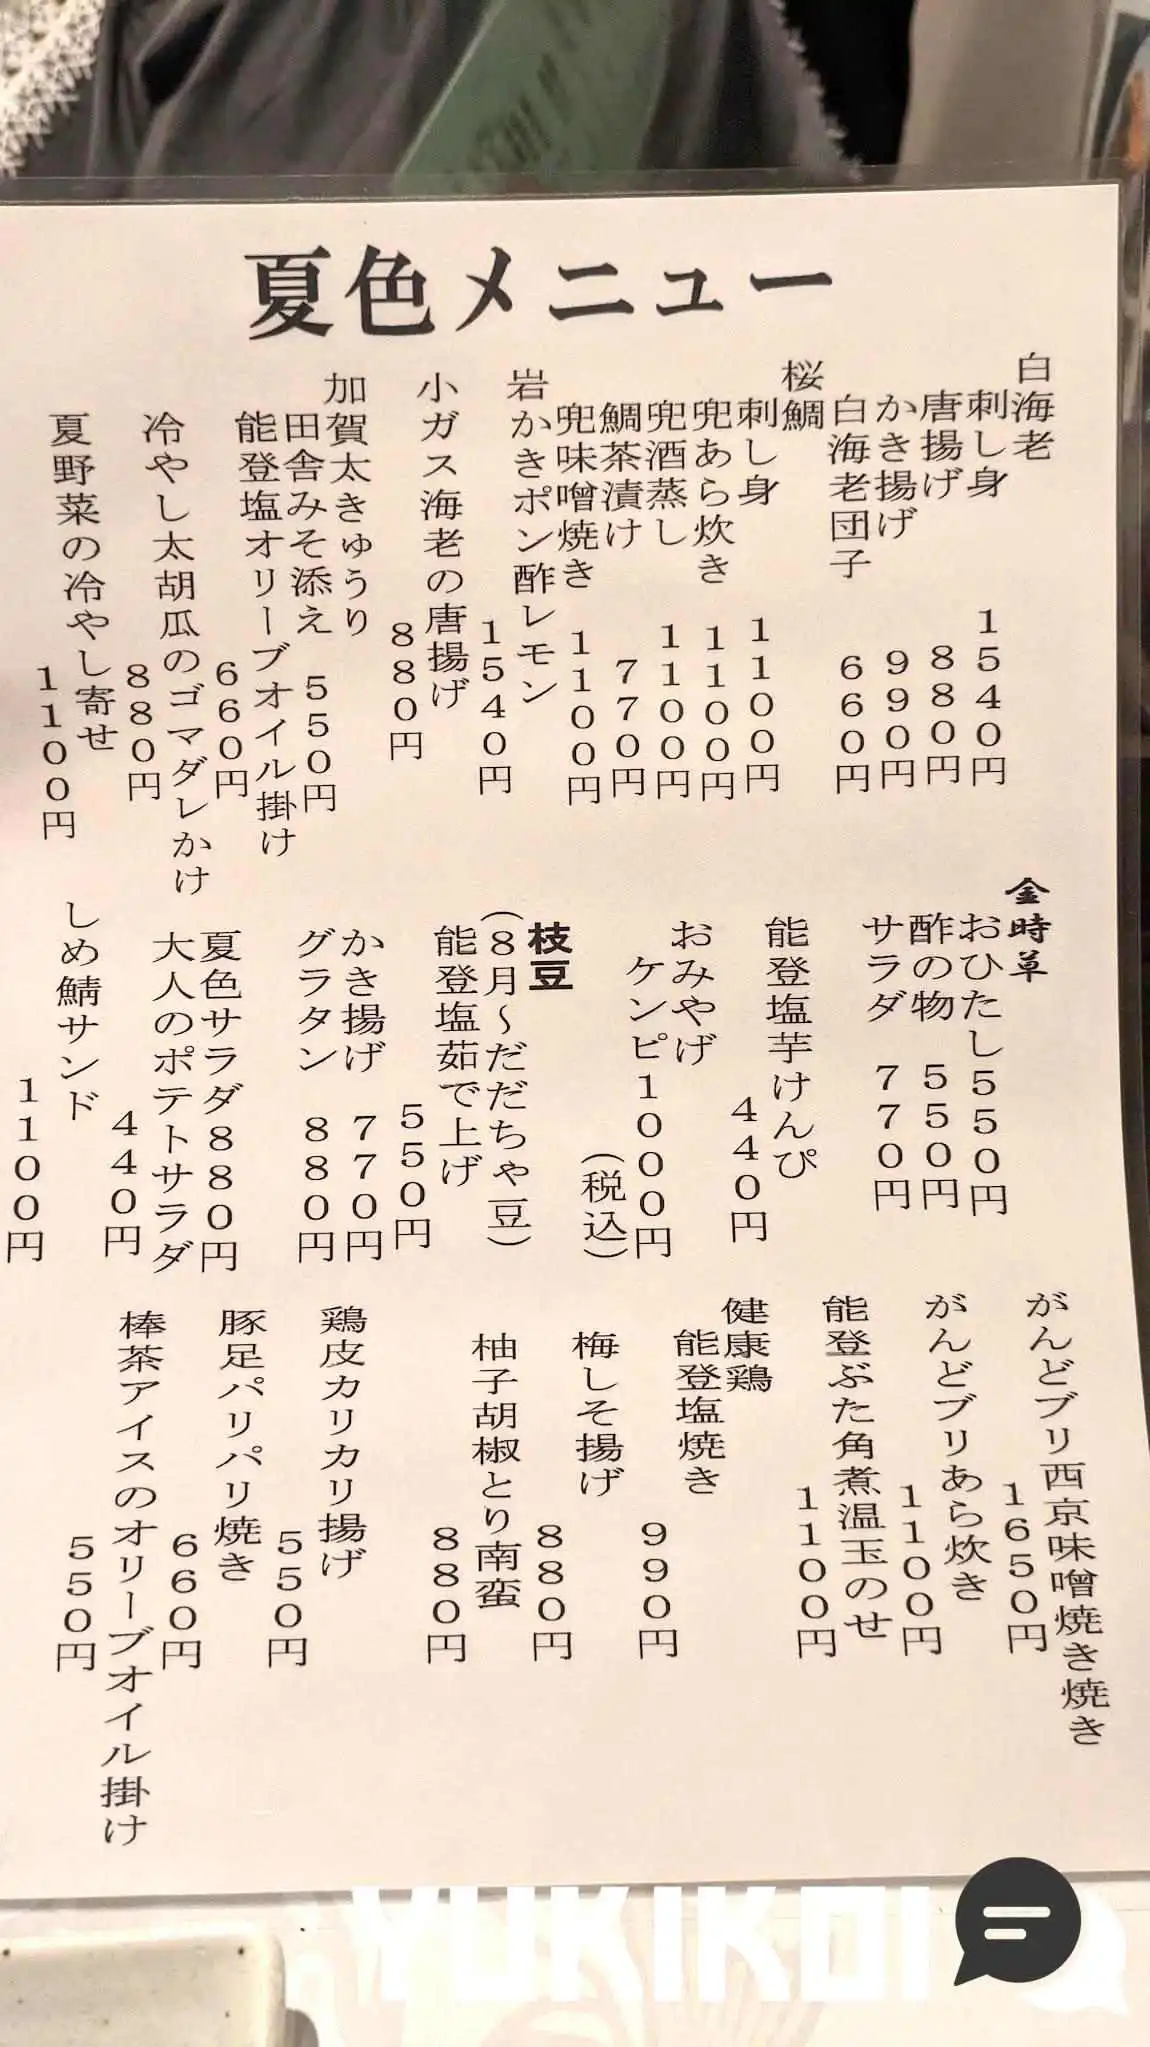 夏色メニュー
白海老
刺し身 1540円
唐揚げ 880円
かき揚げ 990円
白海老団子 660円
桜鯛
刺し身 1100円
兜あら炊き 1100円
兜酒蒸し 1100円
鯛茶漬け 770円
兜味噌焼き 1100円
岩かきポン酢レモン
1540円
小ガス海老の唐揚げ
880円
加賀太きゅうり
田舎みそ添え 550円
能登塩オリーブオイル掛け
660円
冷やし太胡瓜のゴマダレかけ
880円
夏野菜の冷やし寄せ
1100円
金時草
おひたし550円
酢の物 550円
サラダ 770円
能登塩芋けんぴ
440円
おみやげ
ケンピ1000円
(税込)
枝豆
(8月〜だだちゃ豆)
能登塩茹で上げ
550円
かき揚げ 770円
グラタン 880円
夏色サラダ880円
大人のポテトサラダ
440円
しめ鯖サンド
1100円
がんどブリ西京味噌焼き焼き
1650円
がんどブリあら炊き
1100円
能登ぶた角煮温玉のせ
1100円
健康鶏
能登塩焼き
990円
梅しそ揚げ
880円
柚子胡椒とり南蛮
880円
鶏皮カリカリ揚げ
550円
豚足パリパリ焼き
660円
棒茶アイスのオリーブオイル掛け
550円
YUKIKOI